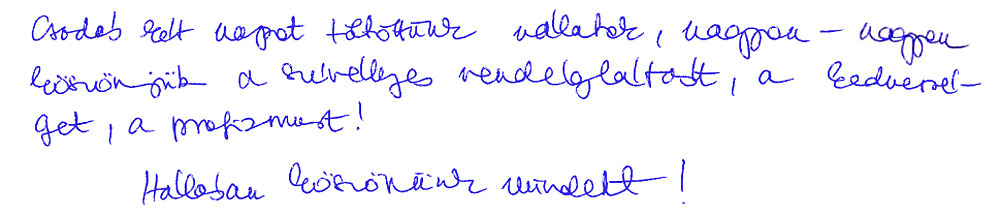 Csodás két napot töltöttünk nálatok, nagyon - nagyon
köszönjük a szívélyes vendéglátást, a kedvessé-
get, a profizmust!
Hálásan köszönünk mindent!